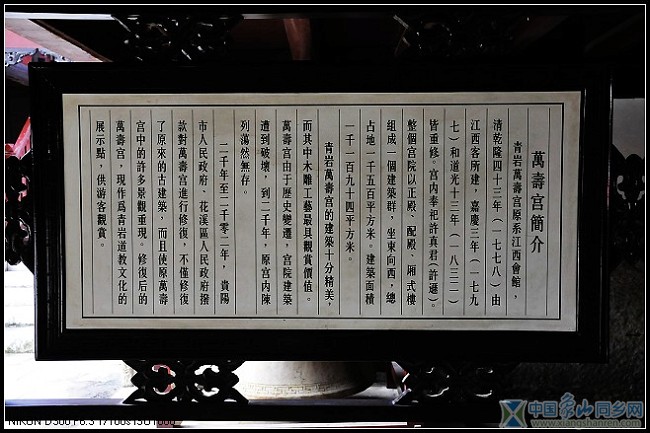 萬壽宫簡介
青岩萬壽宫原系江西會館，
清乾隆四十三年（一七七八）由
江西客所建，嘉慶三年（一七九
七）和道光十三年（一八三二）
皆重修。宫内奉祀許真君（許遜）。
整個宫院以正殿、配殿、厢式樓
組成一個建築群，坐東向西，總
占地一千五百平方米。建築面積
一千一百九十四平方米。
青岩萬壽宫的建築十分精美，
而其中木雕工藝最具觀賞價值。
萬壽宫由于歷史變遷，宫院建築
遭到破壞，到二千年，原宫内陳
列荡然無存。
二千年至二千零二年，貴陽
市人民政府、花溪區人民政府撥
款對萬壽宫進行修復，不僅修復
了原來的古建築，而且使原萬壽
宫中的許多景觀重現。修復后的
萬壽宫，現作爲青岩道教文化的
展示點，供游客觀賞。
NIKON D300 F6.3 1/100s ISO1000
中国象山同乡网
www.xiangshanren.com